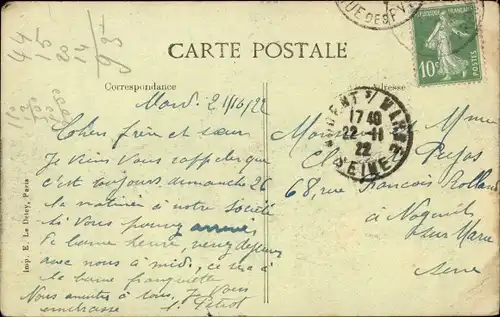 44
15
20
14
93
RUE DES P
REPUBLIQUE FRANÇAISE
10c
POSTES
CARTE POSTALE
Correspondance
Adresse
Mard. 21/10/22
Chers frère et sœur
Je viens vous rappeler que
c'est toujours dimanche 26
la matinée à notre Société
Si vous pouvez
de bonne heure, venez déjeuner
avec nous à midi, ce sera à
la bonne franquette
Nous amitiés à tous, Je vous
embrasse
NOGENT S/ MARNE
17 40
22 - 11
22
SEINE
Mme
68, rue François Rolland
à Nogent
sur Marne
Seine
Imp. E. Le Deley, Paris